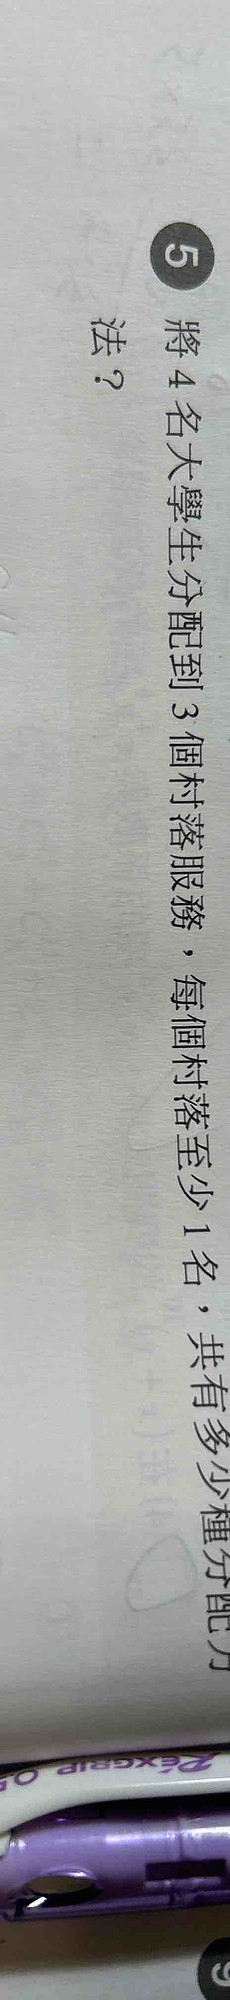 5 將4名大學生分配到3個村落服務，每個村落至少1名，共有多少種分配方
法？
REXGRIP
9